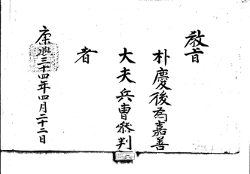 教旨
朴慶後爲嘉善
大夫兵曹叅判
者
康熙三十四年四月二十二日